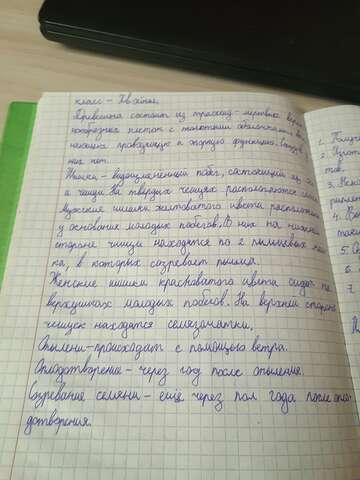 класс – Хвойные.
Древесина состоит из трахеид – мёртвых вере
нообразных клеток с толстыми оболочками, вы
няющих проводящую и опорную функцию.
них нет.
Шишки – видоизменённый побег, состоящий из оси
и чешуи. На твёрдых чешуях располагаются
Мужские шишки желтоватого цвета расположены
у основания молодых побегов. В них на нижней
стороне чешуи находятся по 2 пыльцевых меш
ка, в которых созревает пыльца.
Женские шишки красноватого цвета сидят на
верхушках молодых побегов. На верхней стороне
чешуек находятся семязачатки.
Опылени – происходит с помощью ветра.
Оплодотворение – через год после опыления.
Созревание семени – ещё через пол года после опло
дотворения.
1.
2.
тов.
3.
4.
5.
6.
7